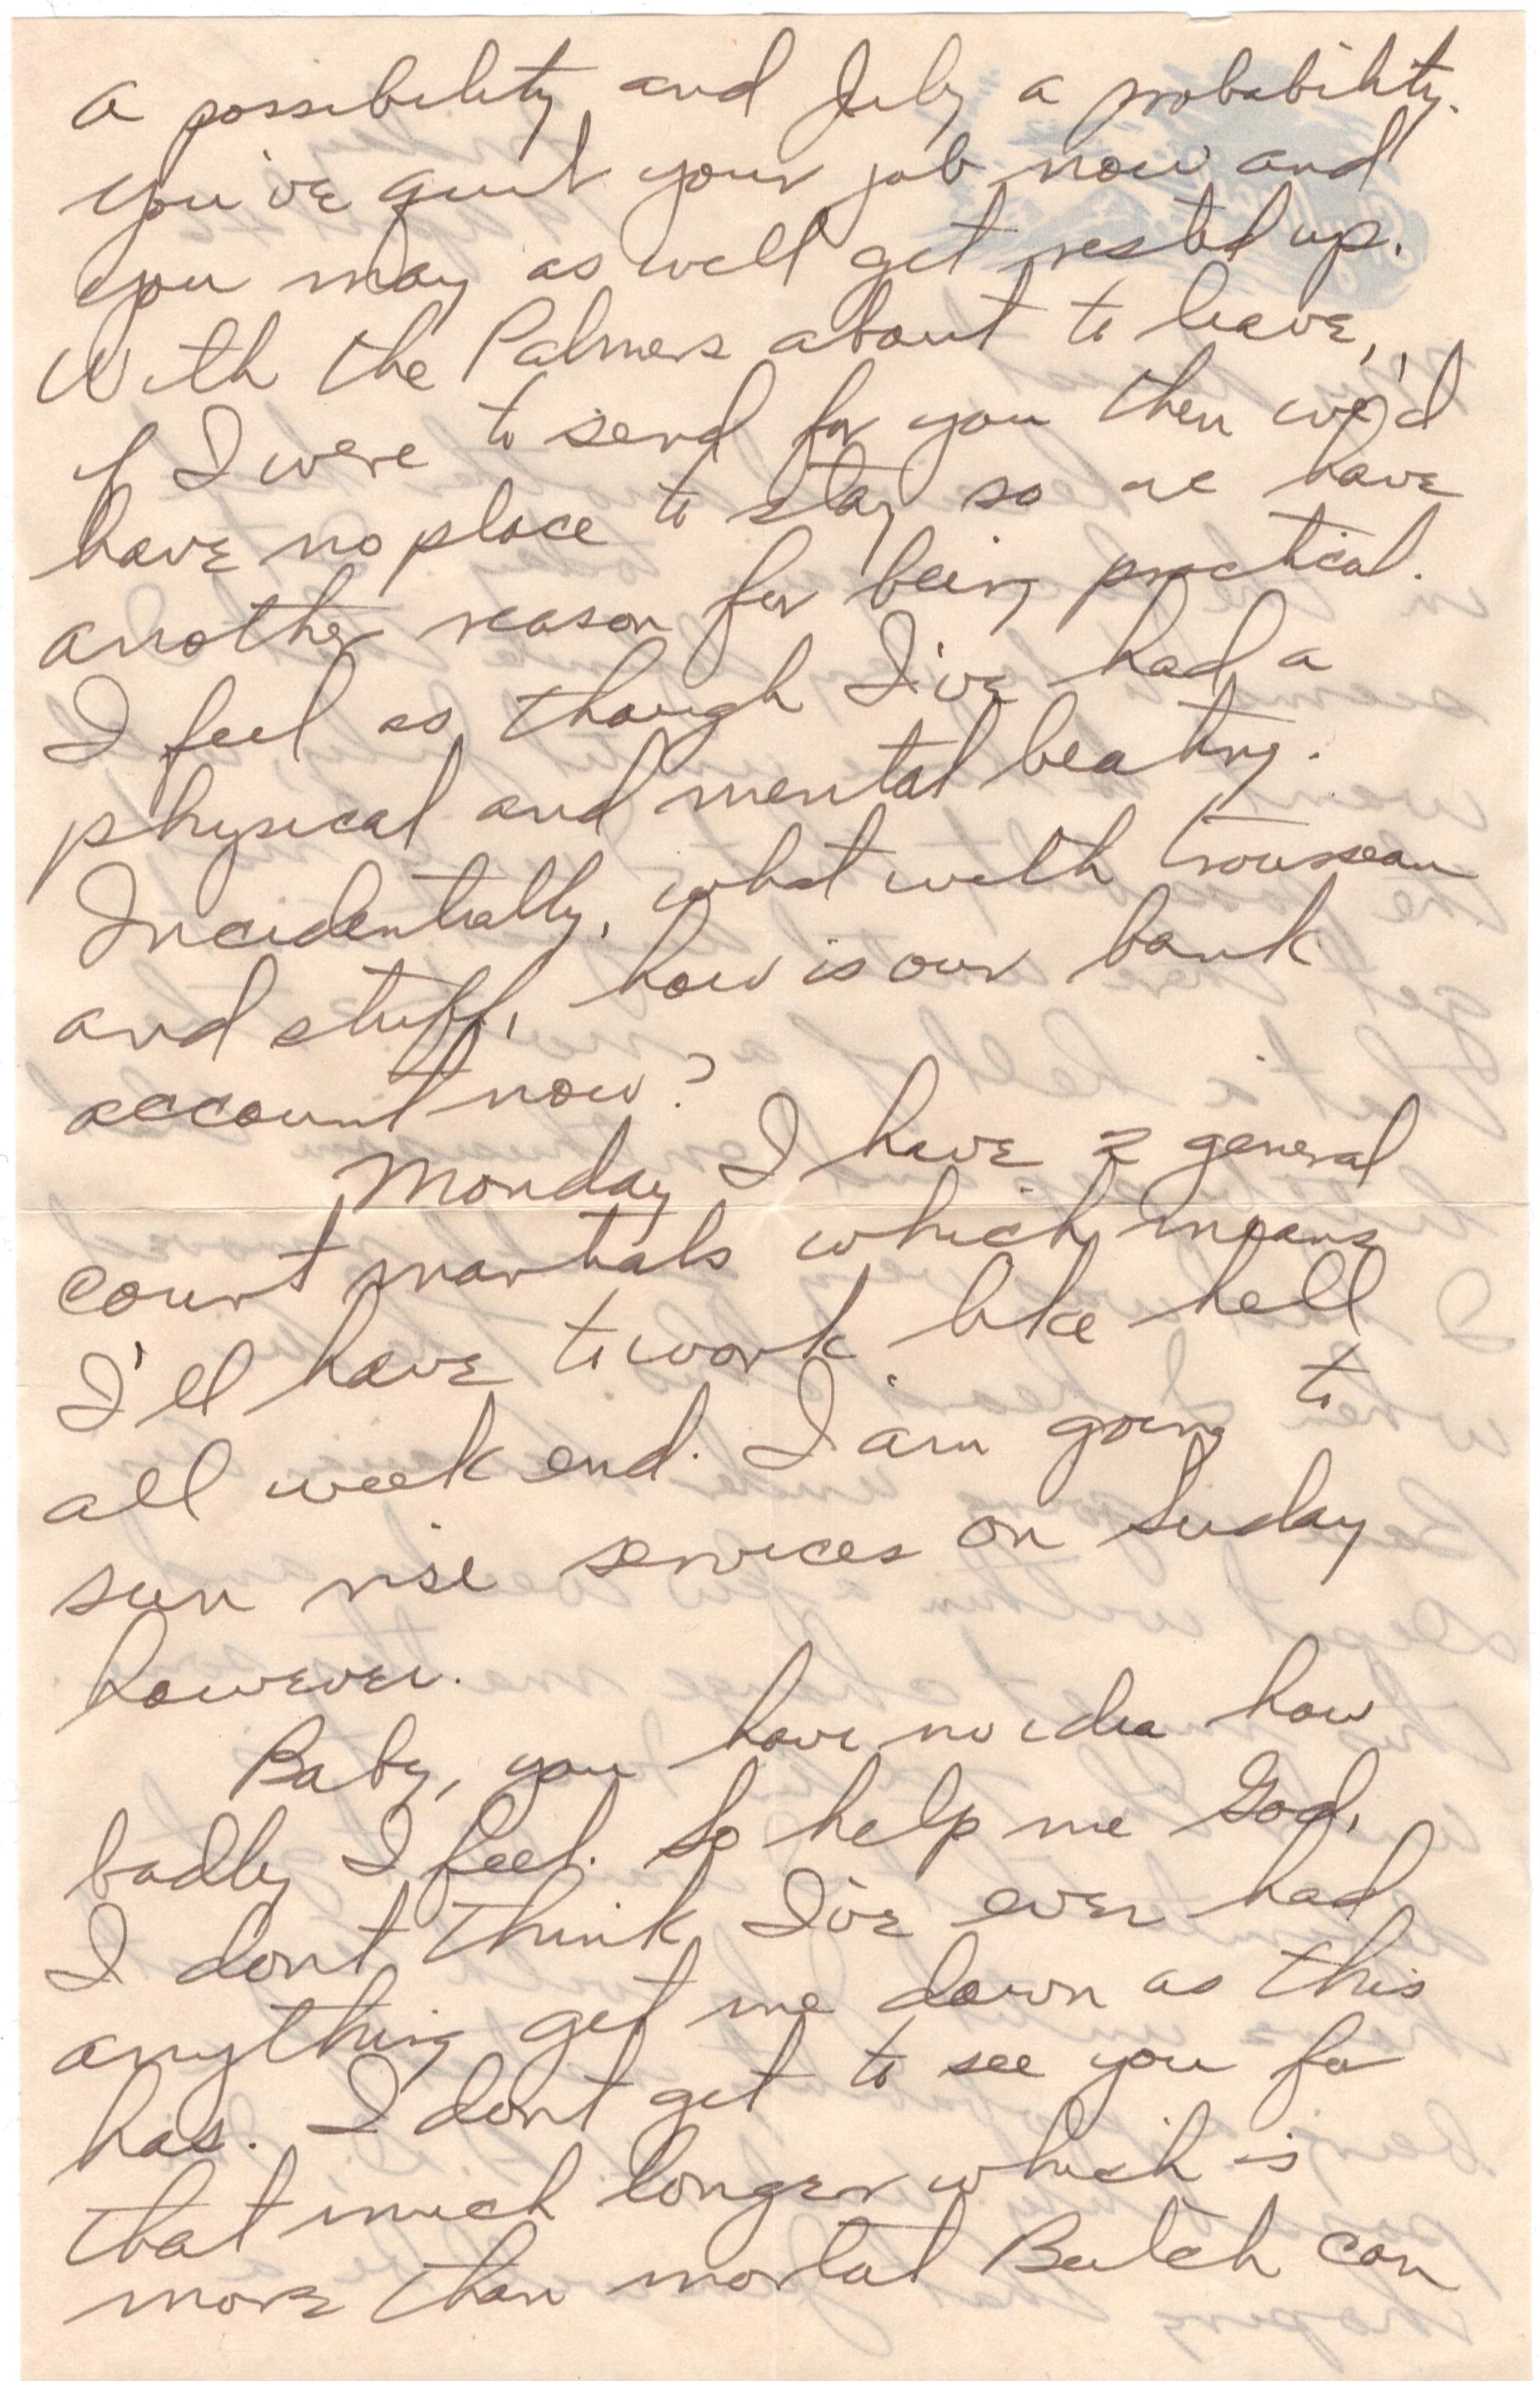 a possibility and July a probability.
You've quit your job now and
you may as well get rested up.
With the Palmers about to leave,
if I were to send for you then we'd
have no place to stay so we have
another reason for being practical.
I feel as though I've had a
physical and mental beating.
Incidentally, what with trousseau
and stuff, how is our bank
account now?
Monday I have 2 general
court martials which means
I'll have to work like hell
all week end. I am going to
sun rise services on Suday
however.
Baby, you have no idea how
badly I feel. So help me God,
I dont think I've ever had
anything get me down as this
has. I dont get to see you for
that much longer which is
more than mortal Butch can